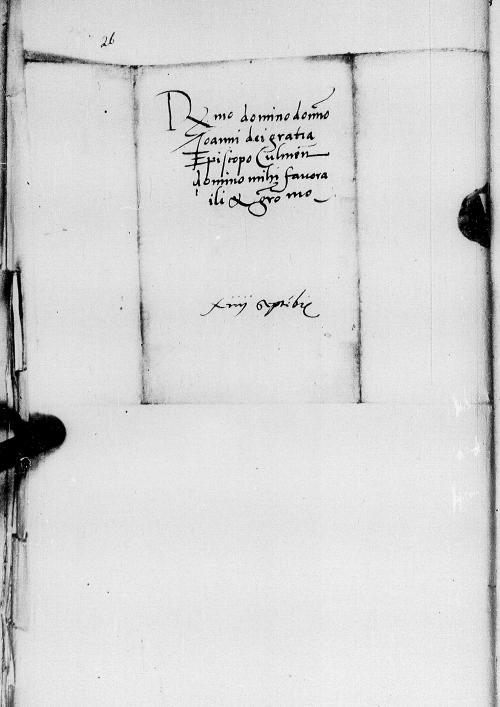 26
Rmo domino domno
Ioanni dei gratia
Episcopo Culmen
domino mihi favora
ili & gro mo
xiiij Septebris